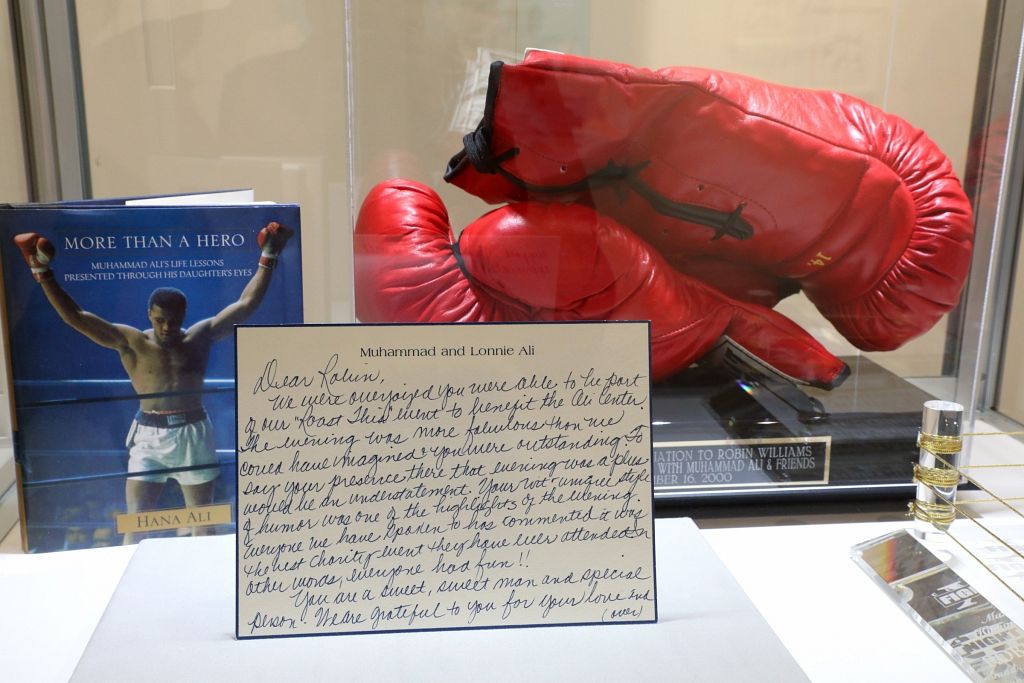 MORE THAN A HERO
MUHAMMAD ALI'S LIFE LESSONS
PRESENTED THROUGH HIS DAUGHTER'S EYES
HANA ALI
Muhammad and Lonnie Ali
Dear Robin,
We were overjoyed you were able to be part
of our "Roast This" event to benefit the Ali Center.
The evening was more fabulous than we
could have imagined & you were outstanding. To
say your presence there that evening was a plus
would be an understatement. Your wit unique style
of humor was one of the highlights of the evening.
Everyone we have spoken to has commented it was
the best charity event they have ever attended. In
other words, everyone had fun!!
You are a sweet, sweet man and special
person. We are grateful to you for your love and
(over)
14.
IATION TO ROBIN WILLIAMS
WITH MUHAMMAD ALI & FRIENDS
BER 16, 2000
FIG
NIGHT